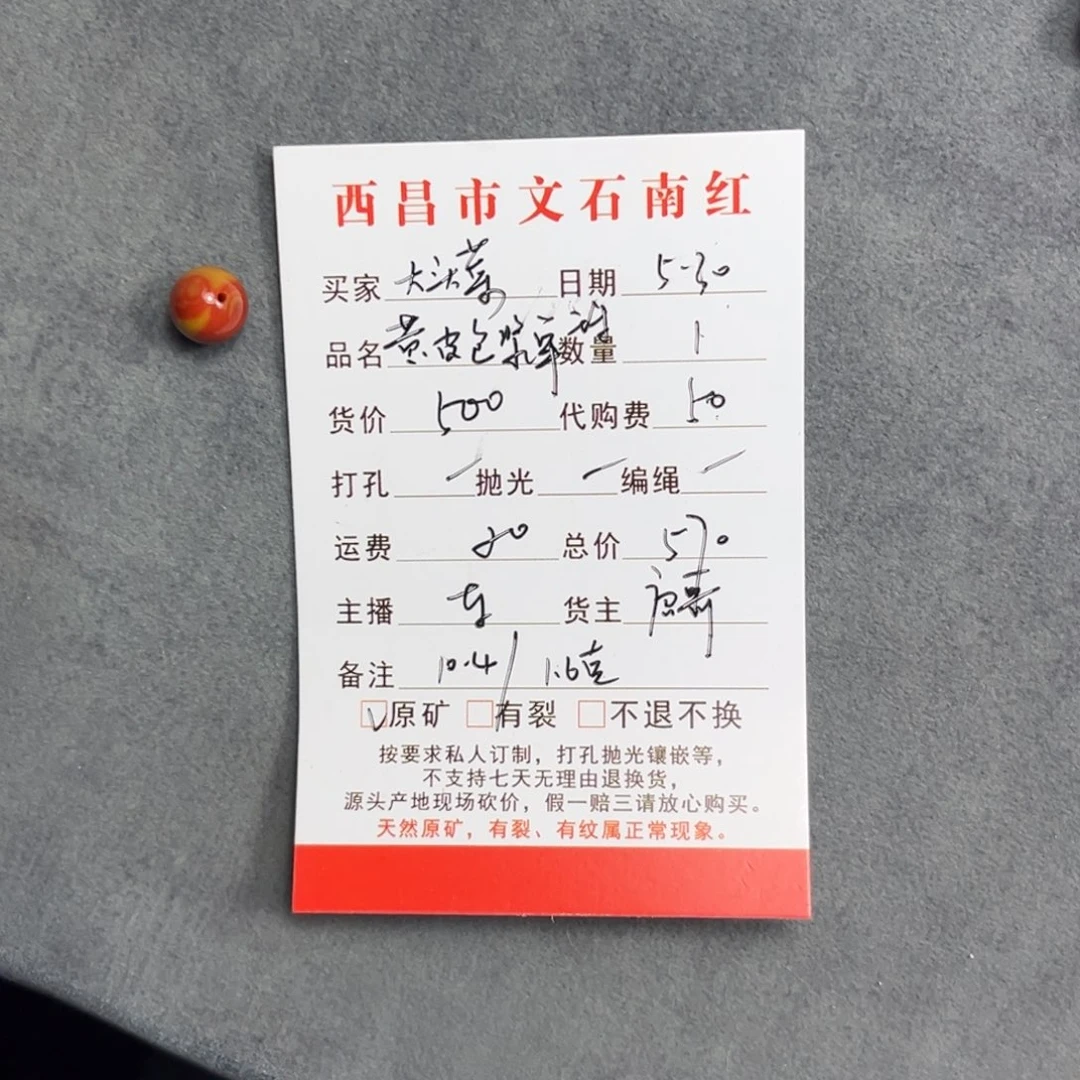 西昌市文石南红
买家 大头菜 日期 5-30
品名 黄皮包浆单珠 数量 1
货价 500 代购费 50
打孔 / 抛光 / 编绳 /
运费 20 总价 570
主播 货主
备注 10.4/1.6克
☑原矿 □有裂 □不退不换
按要求私人订制，打孔抛光镶嵌等，
不支持七天无理由退换货，
源头产地现场砍价，假一赔三请放心购买。
天然原矿，有裂、有纹属正常现象。